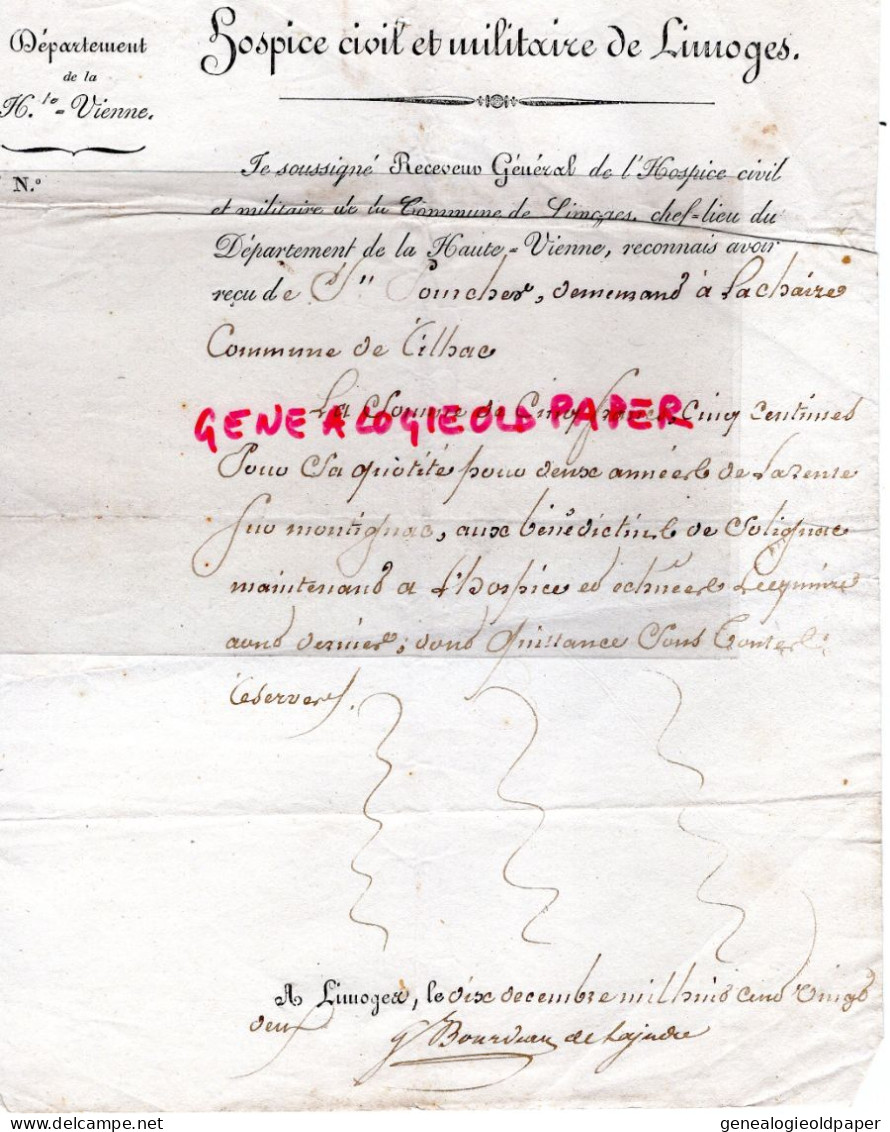 Département
de la
H.te = Vienne.
Hospice civil et militaire de Limoges.
N.o
Je soussigné Receveur Général de l'Hospice civil
et militaire de la Commune de Limoges, chef=lieu du
Département de la Haute=Vienne, reconnais avoir
reçu de Sr. , demeurand à Lachaize
Commune de
La Somme de Cinq francs Cinq Centimes
GENEALOGIEOLDPAPER
Pour Sa quotité pour deux années de la rente
Sur montignac, aux bénédictins de Solignac
maintenand a L'hospice ed échues Le premier
aoud dernier, dond quittance Sous toutes
réserves.
A Limoges, le dix decembre mil huid cend vingd
deux
Bourdeau de Lajudie
www.delcampe.net
genealogieoldpaper